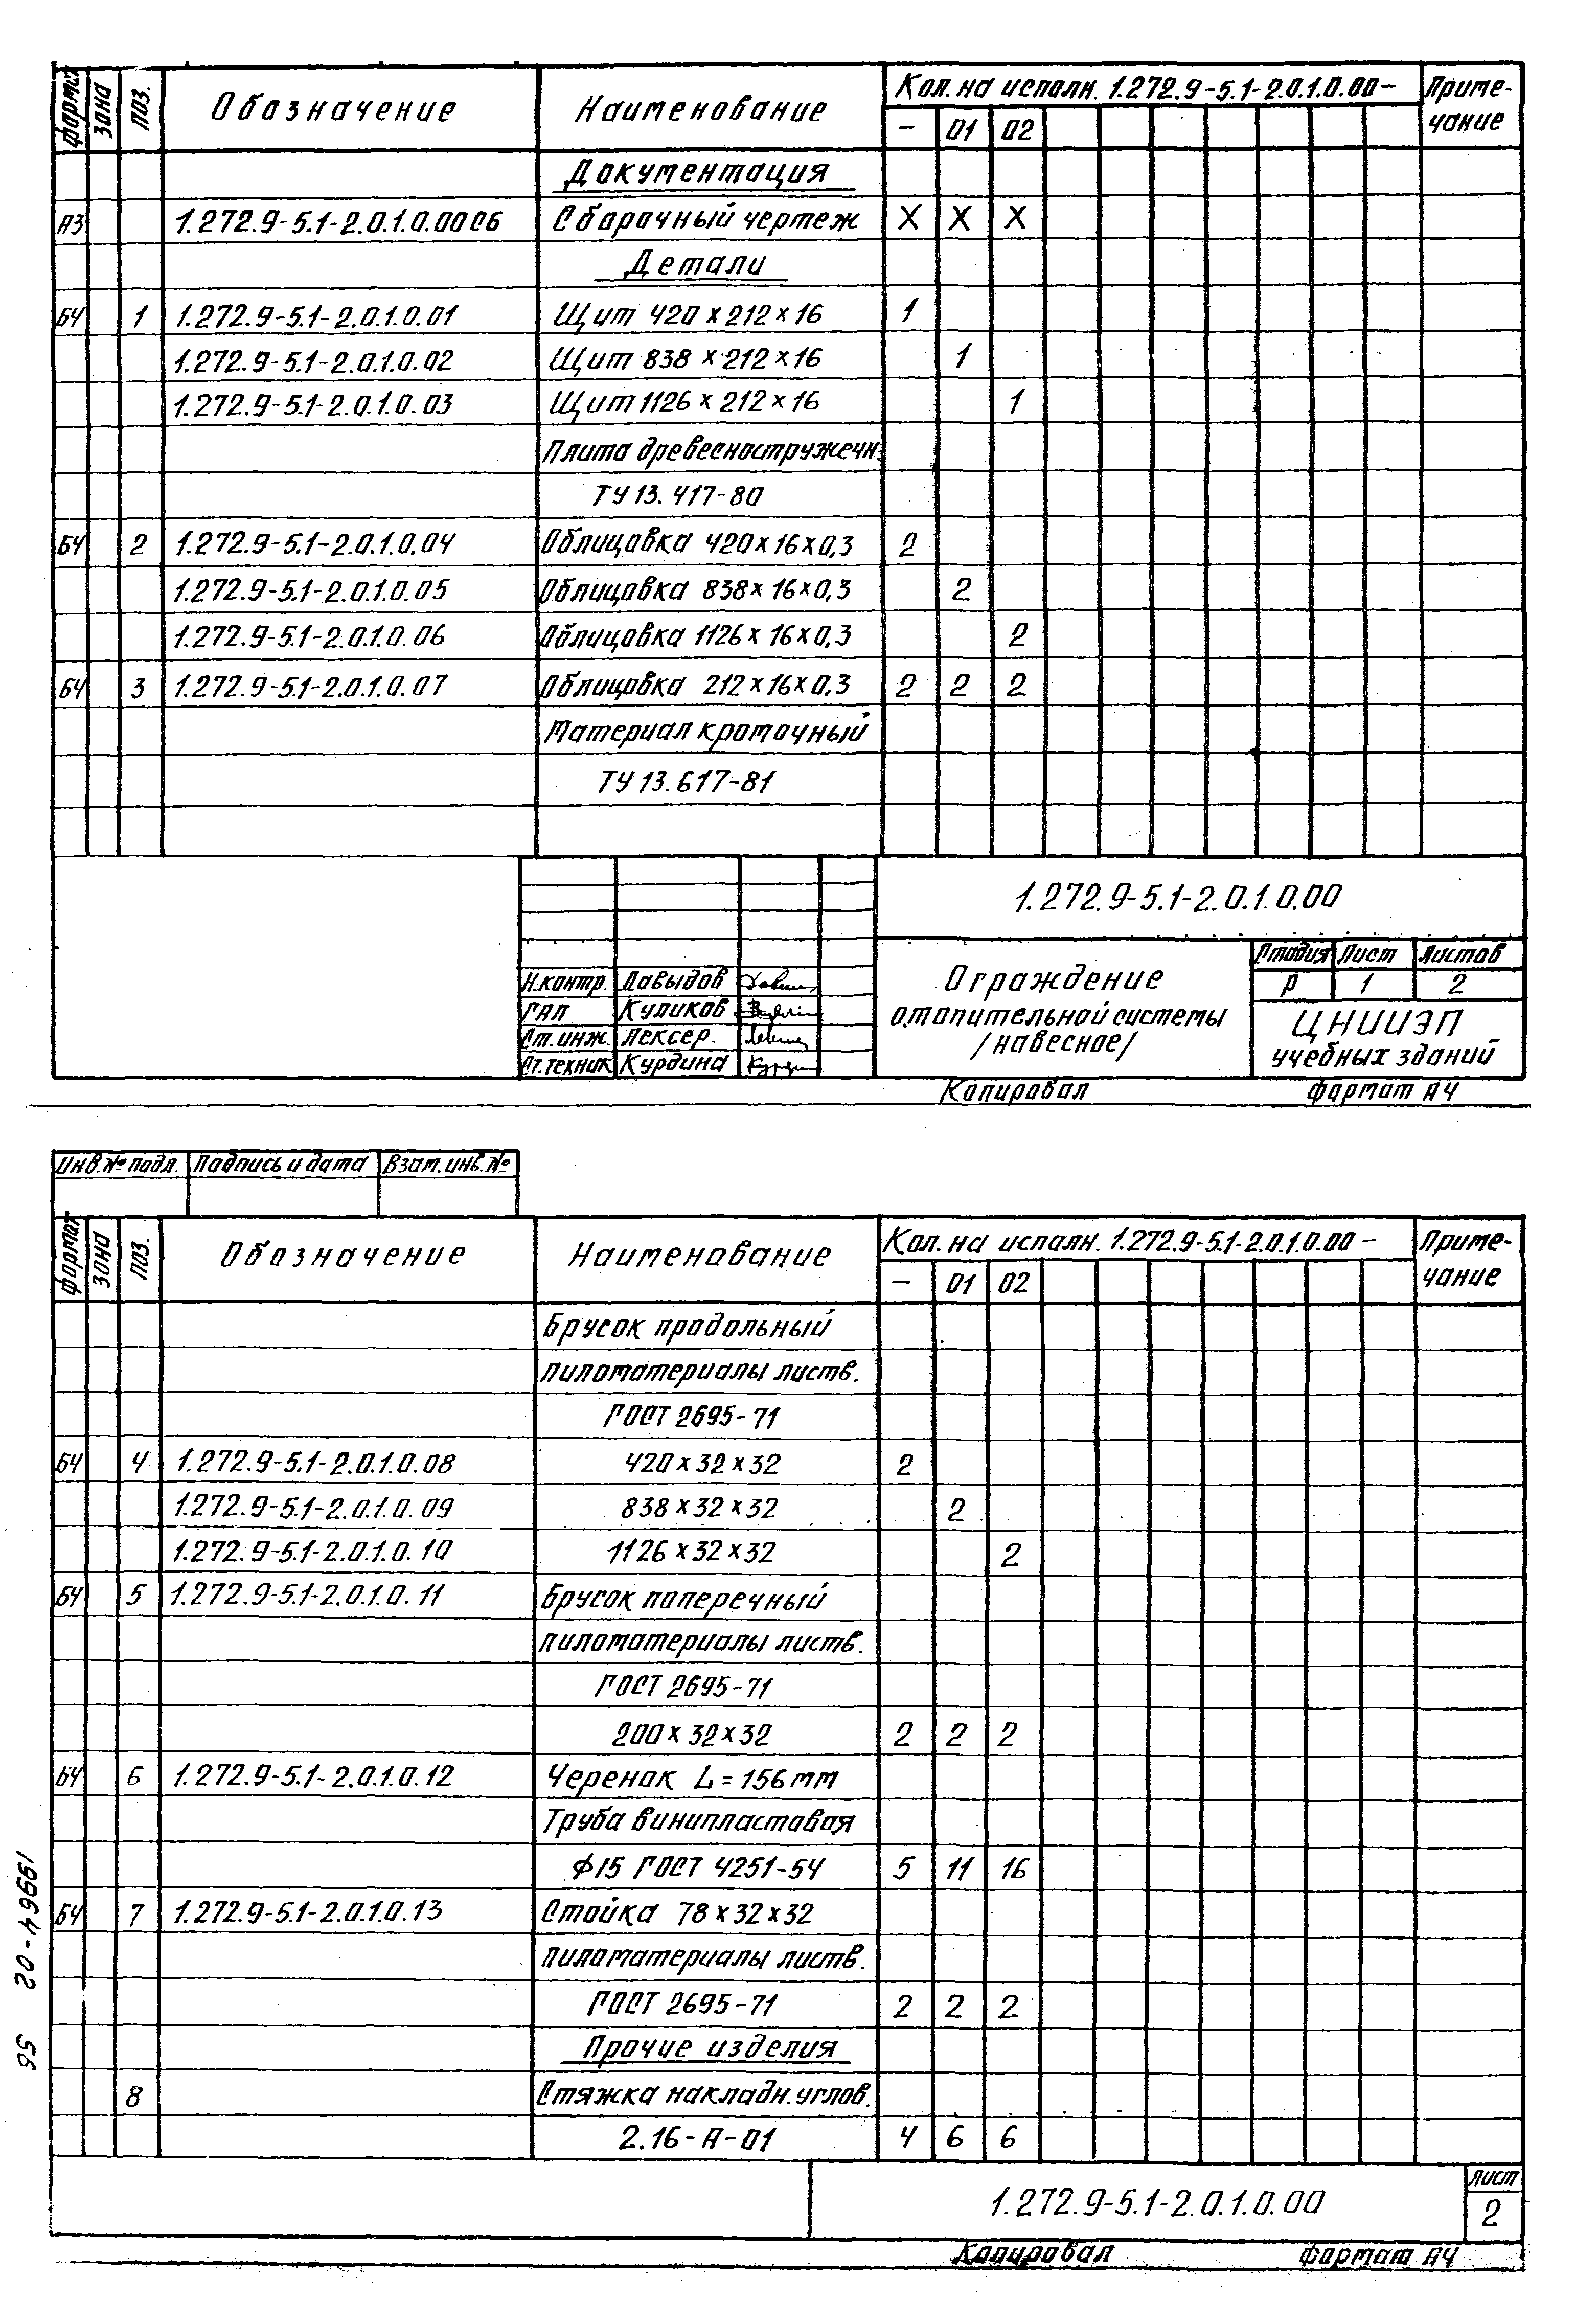 Формат Зона Поз. Обозначение Наименование Кол. на исполн. 1.272.9-5.1-2.0.1.0.00- Приме-
чание
- 01 02
Документация
А3 1.272.9-5.1-2.0.1.0.00СБ Сборочный чертеж X X X
Детали
БЧ 1 1.272.9-5.1-2.0.1.0.01 Щит 420x212x16 1
1.272.9-5.1-2.0.1.0.02 Щит 838x212x16 1
1.272.9-5.1-2.0.1.0.03 Щит 1126x212x16 1
Плита древесностружечн.
ТУ 13.417-80
БЧ 2 1.272.9-5.1-2.0.1.0.04 Облицовка 420x16x0,3 2
1.272.9-5.1-2.0.1.0.05 Облицовка 838x16x0,3 2
1.272.9-5.1-2.0.1.0.06 Облицовка 1126x16x0,3 2
БЧ 3 1.272.9-5.1-2.0.1.0.07 Облицовка 212x16x0,3 2 2 2
Материал кромочный
ТУ 13.617-81
1.272.9-5.1-2.0.1.0.00
Н.контр. Давыдов
ГАП Куликов
Ст.инж. Лексер.
Ст.техник Курдина
Ограждение
отопительной системы
/навесное/
Стадия Лист Листов
Р 1 2
ЦНИИЭП
учебных зданий
Копировал Формат А4
Инв.№ подл. Подпись и дата Взам.инв.№
Формат Зона Поз. Обозначение Наименование Кол. на исполн. 1.272.9-5.1-2.0.1.0.00- Приме-
чание
- 01 02
Брусок продольный
пиломатериалы листв.
ГОСТ 2695-71
БЧ 4 1.272.9-5.1-2.0.1.0.08 420x32x32 2
1.272.9-5.1-2.0.1.0.09 838x32x32 2
1.272.9-5.1-2.0.1.0.10 1126x32x32 2
БЧ 5 1.272.9-5.1-2.0.1.0.11 Брусок поперечный
пиломатериалы листв.
ГОСТ 2695-71
200x32x32 2 2 2
БЧ 6 1.272.9-5.1-2.0.1.0.12 Черенок L=156мм
Труба винипластовая
Ф15 ГОСТ 4251-54 5 11 16
БЧ 7 1.272.9-5.1-2.0.1.0.13 Стойка 78x32x32
пиломатериалы листв.
ГОСТ 2695-71 2 2 2
Прочие изделия
8 Стяжка накладн.углов.
2.16-А-01 4 6 6
1.272.9-5.1-2.0.1.0.00
Лист
2
Копировал Формат А4
19964-02 56